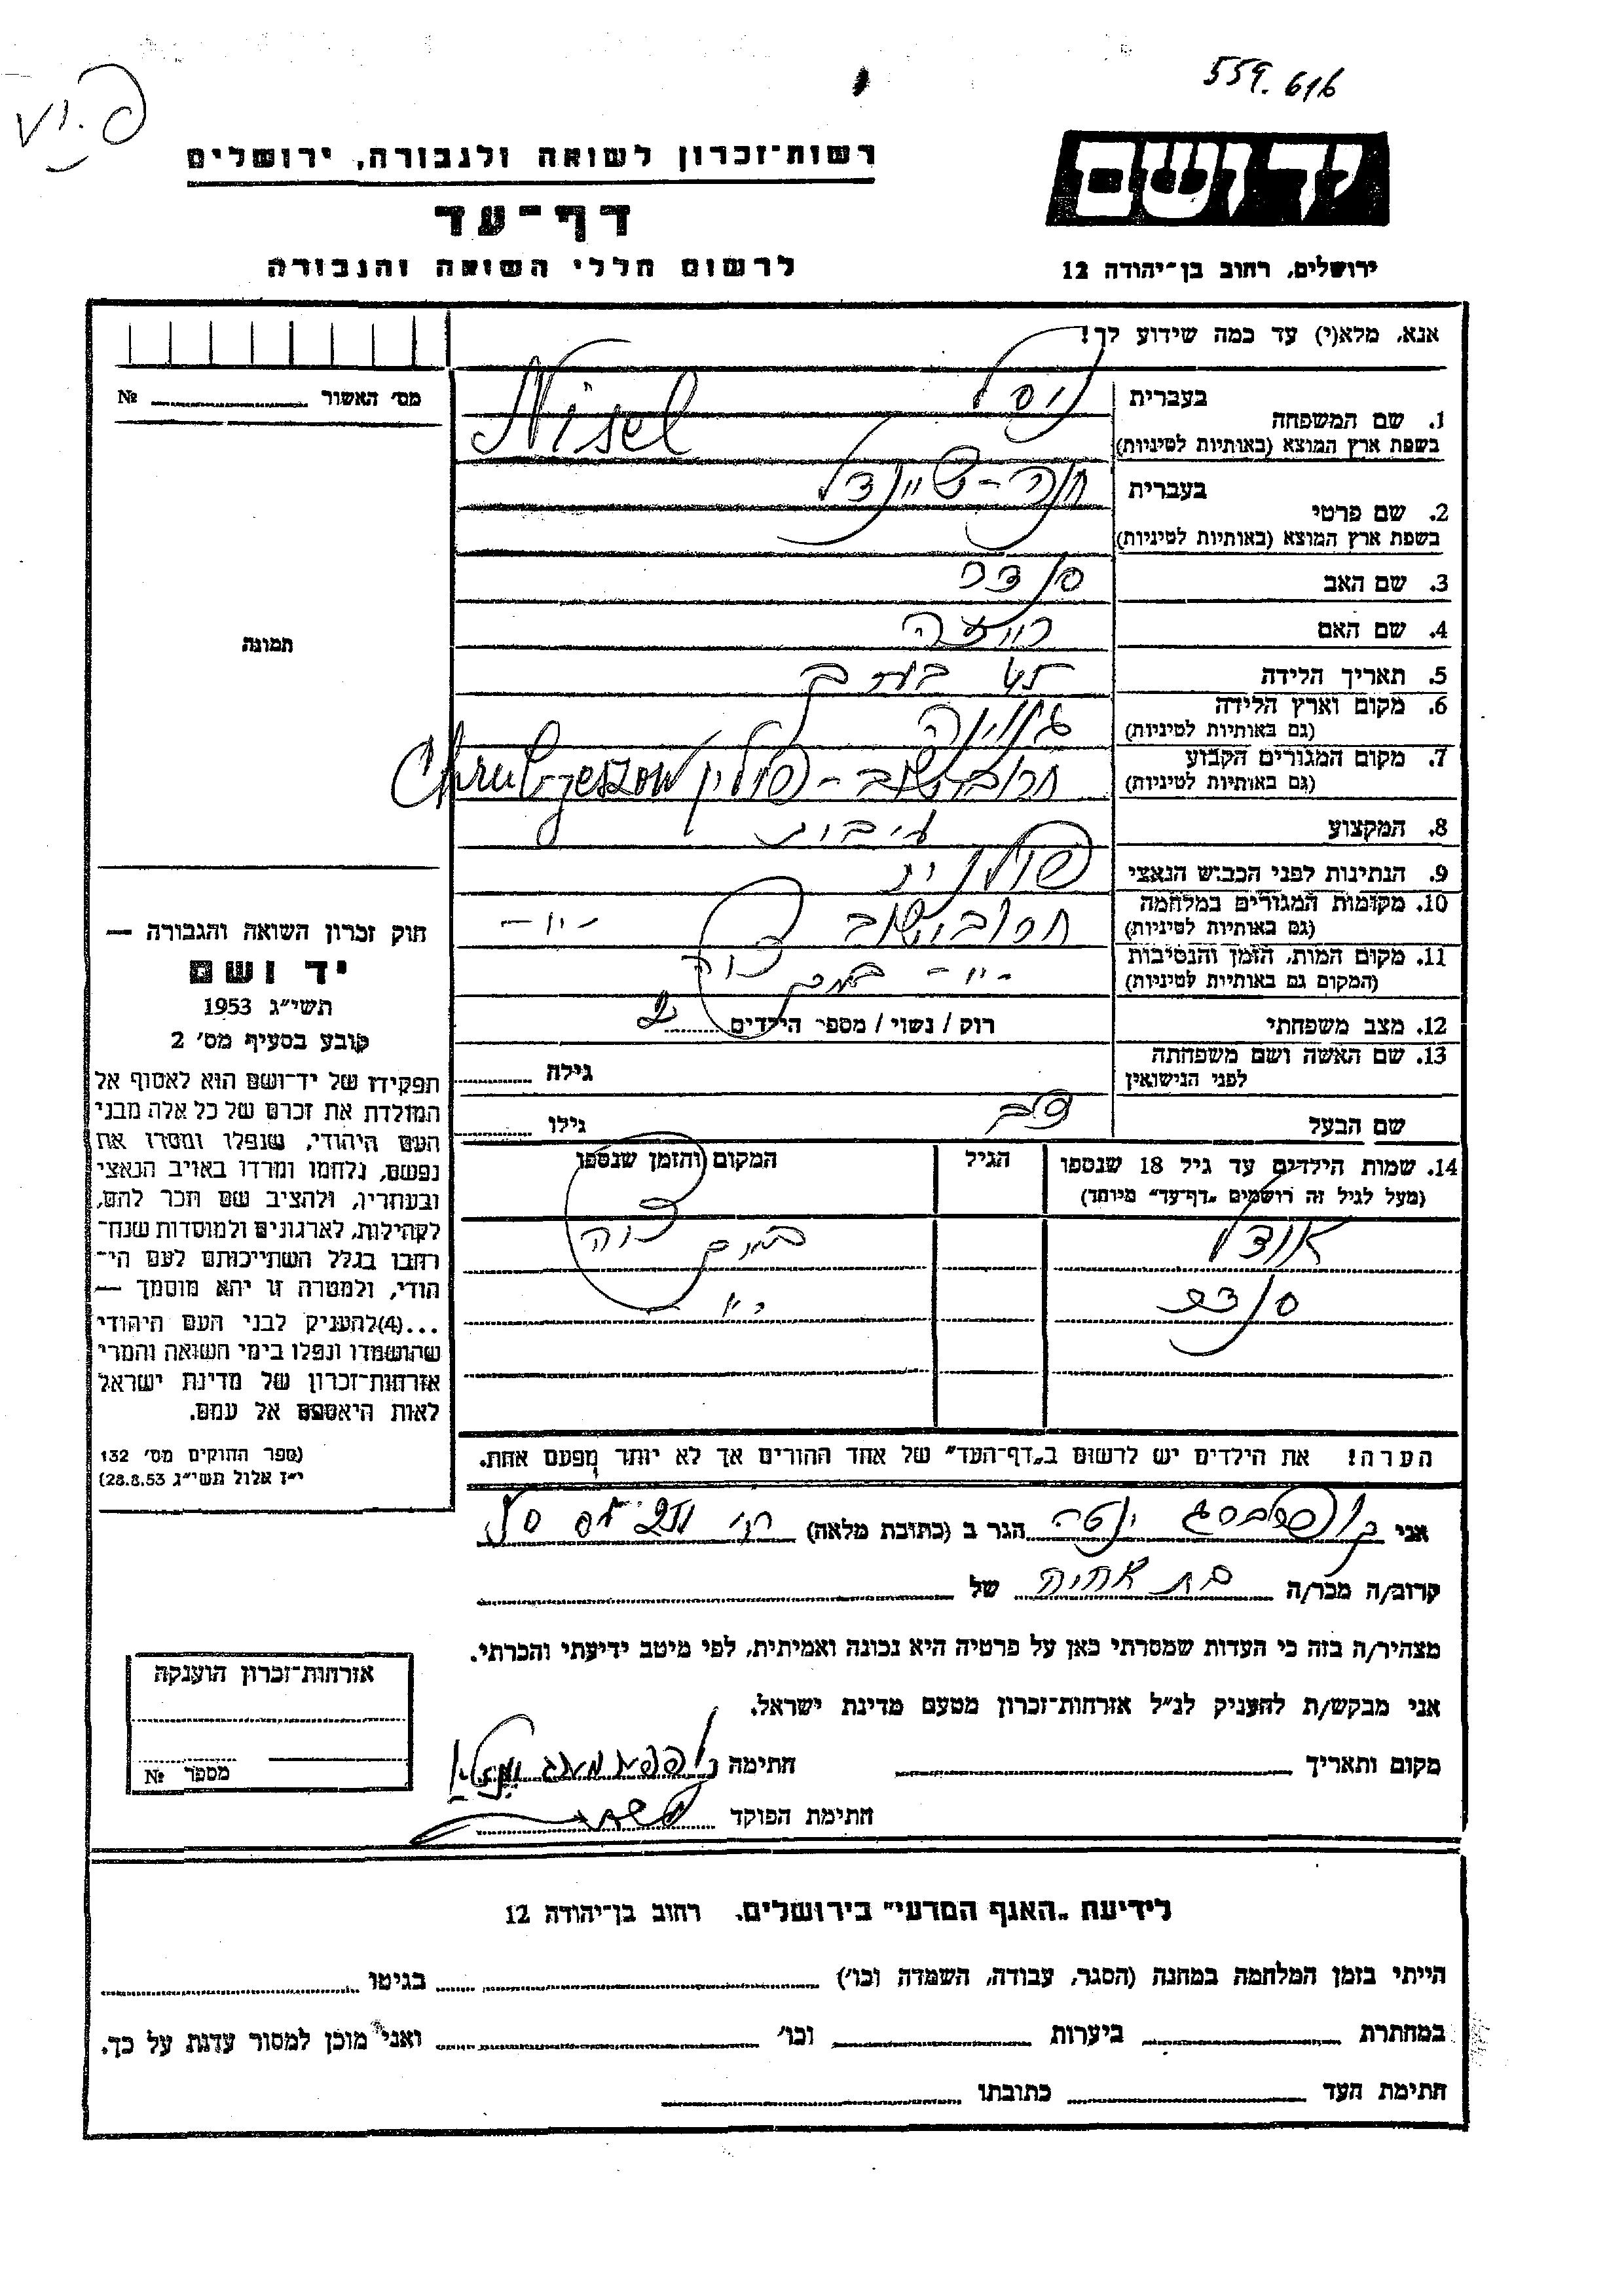 559.616
רשות־זכרון לשואה ולגבורה, ירושלים
יד ושם
דף־עד
לרשום חללי השואה והגבורה
ירושלים, רחוב בן־יהודה 12
אנא, מלא(י) עד כמה שידוע לך!
מס' האשור № 
1. שם המשפחה בעברית ניסל
בשפת ארץ המוצא (באותיות לטיניות) Nisel
2. שם פרטי בעברית חנה-שיינדל
בשפת ארץ המוצא (באותיות לטיניות)
3. שם האב סנדר
4. שם האם
תמונה
5. תאריך הלידה 45 בערך
6. מקום וארץ הלידה
(גם באותיות לטיניות)
7. מקום המגורים הקבוע חרובישוב - פולין Chrubjeszow
(גם באותיות לטיניות)
8. המקצוע
9. הנתינות לפני הכבוש הנאצי פולנית
10. מקומות המגורים במלחמה חרובישוב -"-
(גם באותיות לטיניות)
11. מקום המות, הזמן והנסיבות -"-
(המקום גם באותיות לטיניות)
12. מצב משפחתי רוק / נשוי / מספר הילדים 2
13. שם האשה ושם משפחתה גילה
לפני הנישואין
שם הבעל גילו
14. שמות הילדים עד גיל 18 שנספו הגיל המקום והזמן שנספו
(מעל לגיל זה רושמים „דף־עד" מיוחד)
סנדר
הערה! את הילדים יש לרשום ב„דף־העד" של אחד ההורים אך לא יותר מפעם אחת.
חוק זכרון השואה והגבורה —
יד ושם
תשי"ג 1953
קובע בסעיף מס' 2
תפקידו של יד־ושם הוא לאסוף אל
המולדת את זכרם של כל אלה מבני
העם היהודי, שנפלו ומסרו את
נפשם, נלחמו ומרדו באויב הנאצי
ובעוזריו, ולהציב שם וזכר להם,
לקהילות, לארגונים ולמוסדות שנח־
רבו בגלל השתייכותם לעם הי־
הודי, ולמטרה זו יהא מוסמך —
...(4)להעניק לבני העם היהודי
שהושמדו ונפלו בימי השואה והמרי
אזרחות־זכרון של מדינת ישראל
לאות היאספם אל עמם.
(ספר החוקים מס' 132
י"ז אלול תשי"ג 28.8.53)
אני הגר ב (כתובת מלאה)
קרוב/ה מכר/ה בת אחיה של
מצהיר/ה בזה כי העדות שמסרתי כאן על פרטיה היא נכונה ואמיתית, לפי מיטב ידיעתי והכרתי.
אני מבקש/ת להעניק לנ"ל אזרחות־זכרון מטעם מדינת ישראל.
מקום ותאריך חתימה
חתימת הפוקד
אזרחות־זכרון הוענקה
מספר №
לידיעת „האגף המדעי" בירושלים. רחוב בן־יהודה 12
הייתי בזמן המלחמה במחנה (הסגר, עבודה, השמדה וכו') בגיטו
במחתרת ביערות וכו' ואני מוכן למסור עדות על כך.
חתימת העד כתובתו